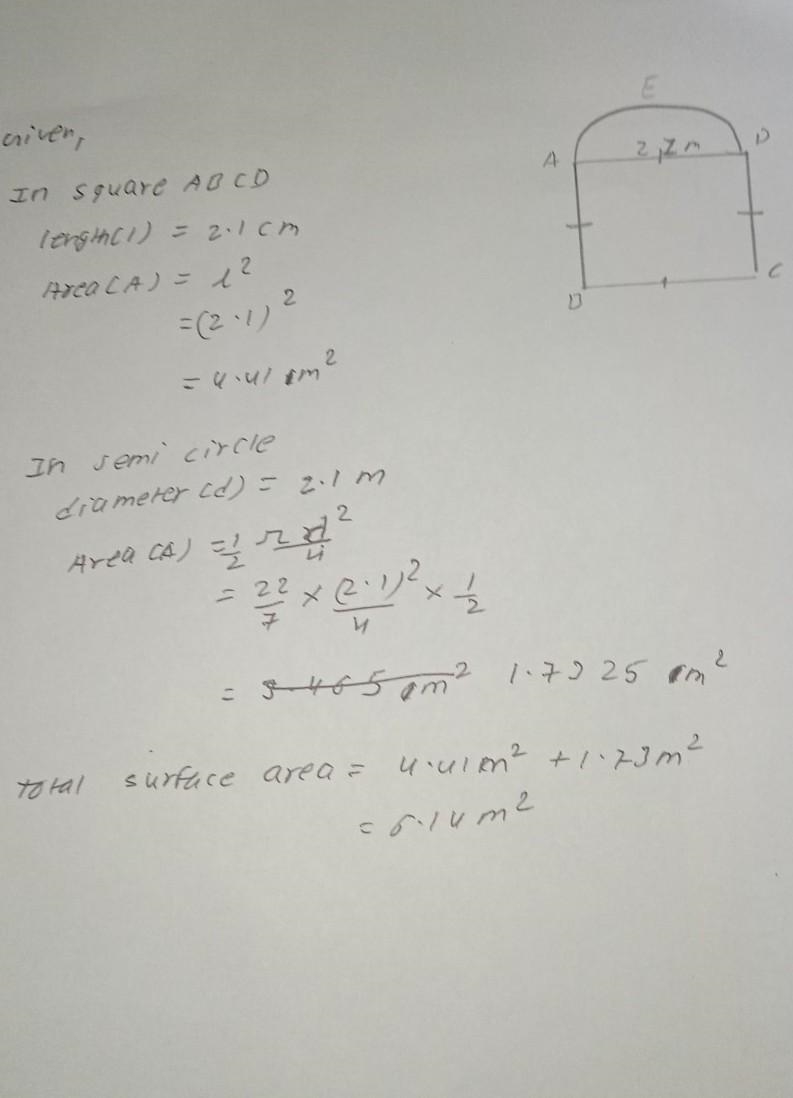 Given,
In square ABCD
length(l) = 2.1 cm
Area(A) = l²
= (2.1)²
= 4.41 m²
In semi circle
diameter (d) = 2.1 m
Area (A) = 1/2 πd²/4
= 22/7 × (2.1)²/4 × 1/2
= 3.465 m² 1.7325 m²
total surface area = 4.41m² + 1.73m²
= 6.14 m²
E
A 2.1 m D
B C